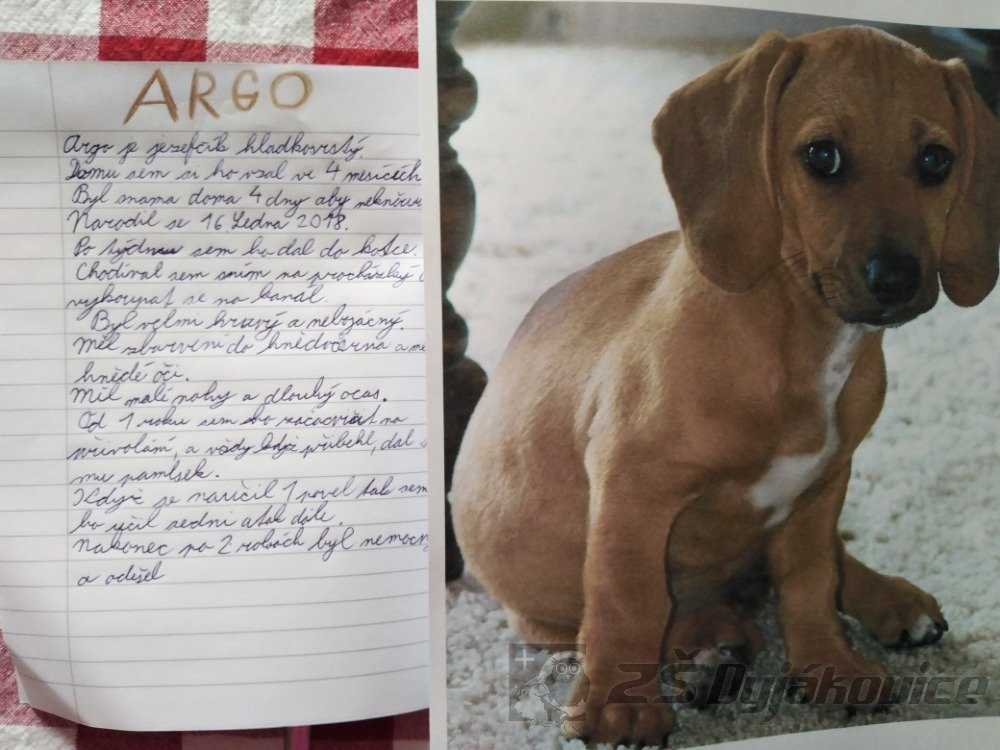 ARGO
Argo je jezefčík hladkovrstý.
Domu sem si ho vzal ve 4 měsících
Byl snama doma 4 dny aby nekňour
Narodil se 16 Ledna 2018.
Po týdnu sem ho dal do kotce.
Chodíval sem sním na procházky a
vykoupat se na kanál.
Byl velmi hravý a nebojácný.
Měl zbarvení do hnědočerna a mě
hnědé oči.
Měl malé nohy a dlouhý ocas.
Od 1 roku sem ho na
přivolání, a vždy když přiběhl, dal s
mu pamlsek.
Když se naučil 1 povel tak sem
ho učil sedni atak dále.
Nakonec po 2 rokách byl nemocn
a odešel
ZŠ Dyjákovice